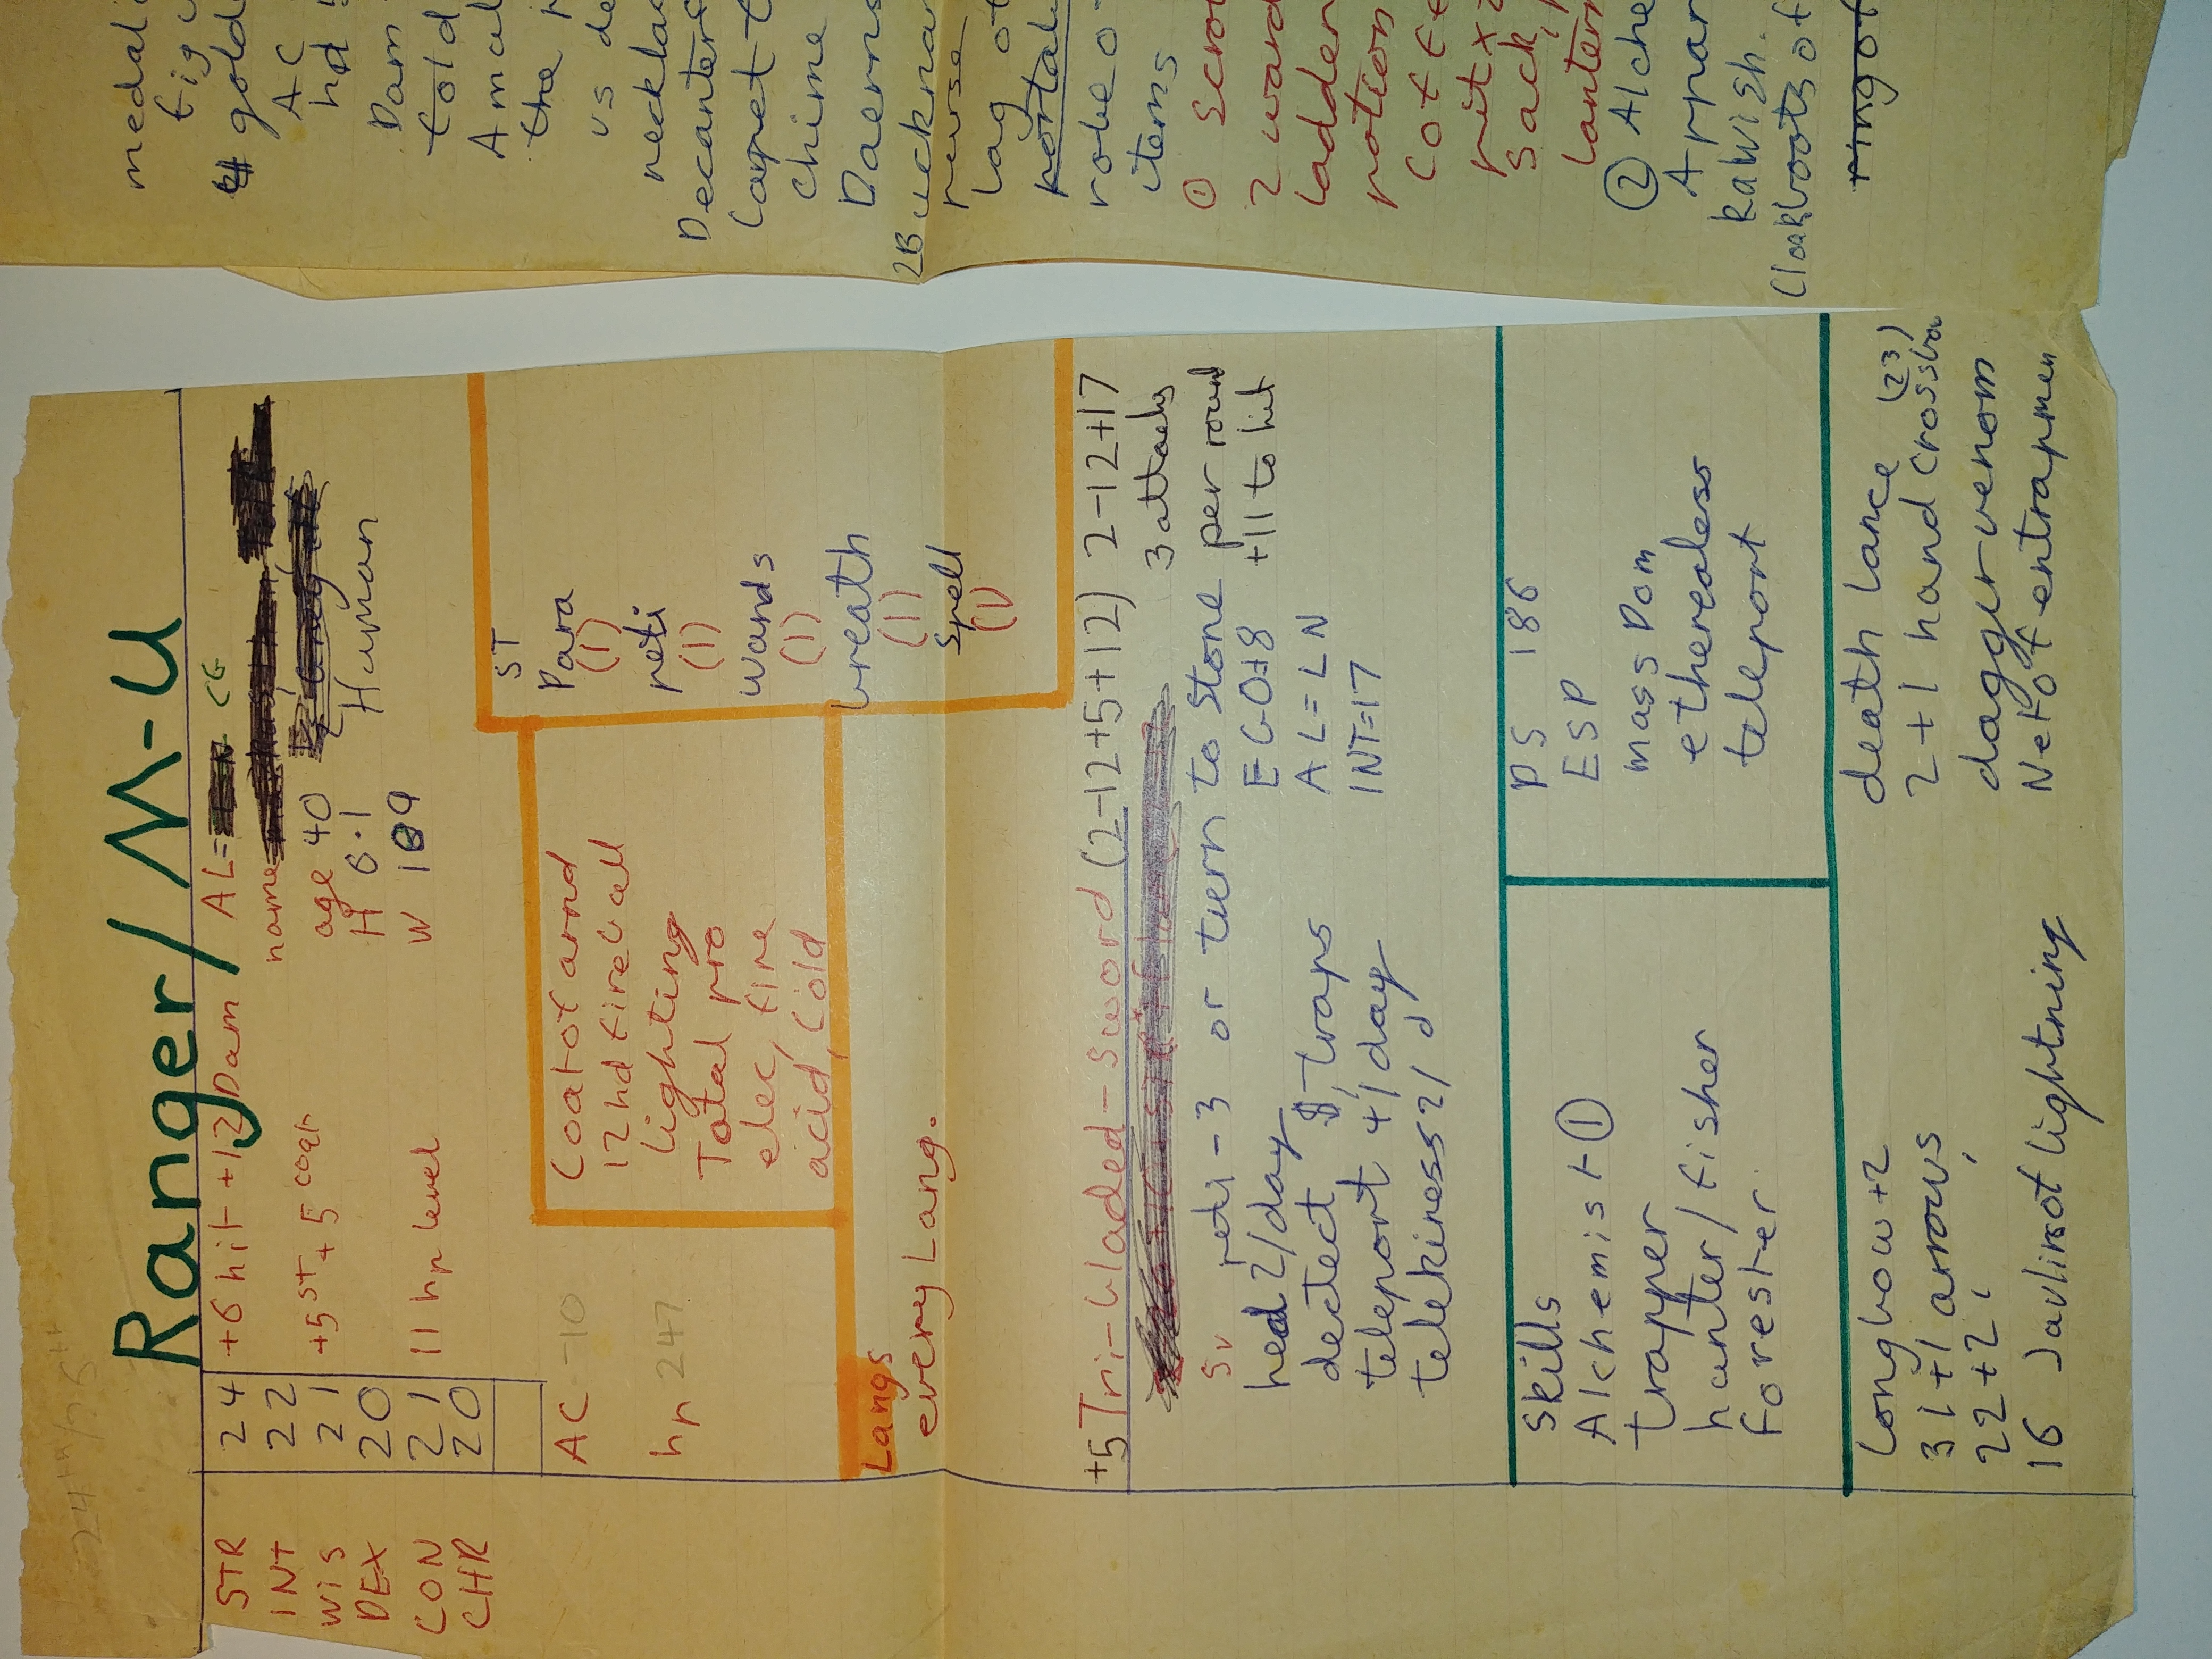 24
Ranger/M-U
STR 24 +6 hit +12 Dam AL= CG
INT 22
name
WIS 21 +5 ST +5 coat
age 40
DEX 20
H 6.1 Human
CON 21 11 hp level
W 189
CHR 20
AC -10
hp 247
Coat of arnd
12hd fireball
lighting
Total pro
elec, fire
acid, cold
ST
Para
(1)
peti
(1)
wands
(1)
breath
(1)
Spell
(1)
Langs
every Lang.
+5 Tri-bladed-sword (2-12+5+12) 2-12+17
3 attacks
per round
+11 to hit
Sv peti -3 or turn to stone
heal 2/day
EGO=8
detect traps
AL=LN
teleport 4/day
INT=17
telekiness 2/d
Skills
Alchemist ①
trapper
hunter/fisher
forester
PS 186
ESP
mass Dom
etherealess
teleport
longbow +2
31 +1 arrows
22 +2,
16 Javlinof lightning
death lance
2 +1 hand crossbow (23)
dagger venom
Net of entrapmen
medali
fig
gold
AC
hd
Dam
told
Amul
the
us de
necklac
Decanter
Carpet
chime
Daerns
2B ucknar
purse
bag of
portab
robe o
items
① scro
2 ward
ladder
potion
cof fe
pit x 2
sack,
lantern
② Alche
Appar
kawish.
Cloakboots of
ring of